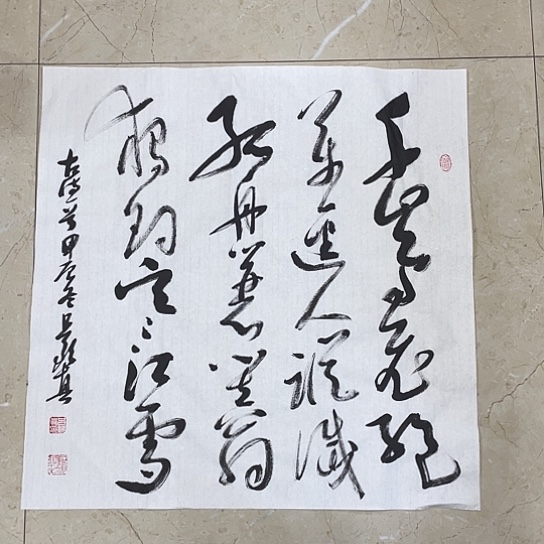 千山鳥飛絕
萬逕人蹤滅
孤舟蓑笠翁
獨釣寒江雪
古詩一首甲辰冬